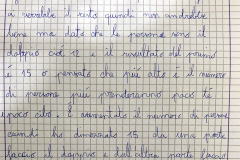 e il resto quindi non andrebbe
bene ma dato che le persone sono il
doppio cioè 12 e il risultato del primo
è 15 o pensato che più alto è il numero
di persone più prenderanno poco tè
poco cibo, è aumentato il numero da persone
quindi ho dimezzato 15 da una parte
faccio il doppio e dall'altra parte faccio